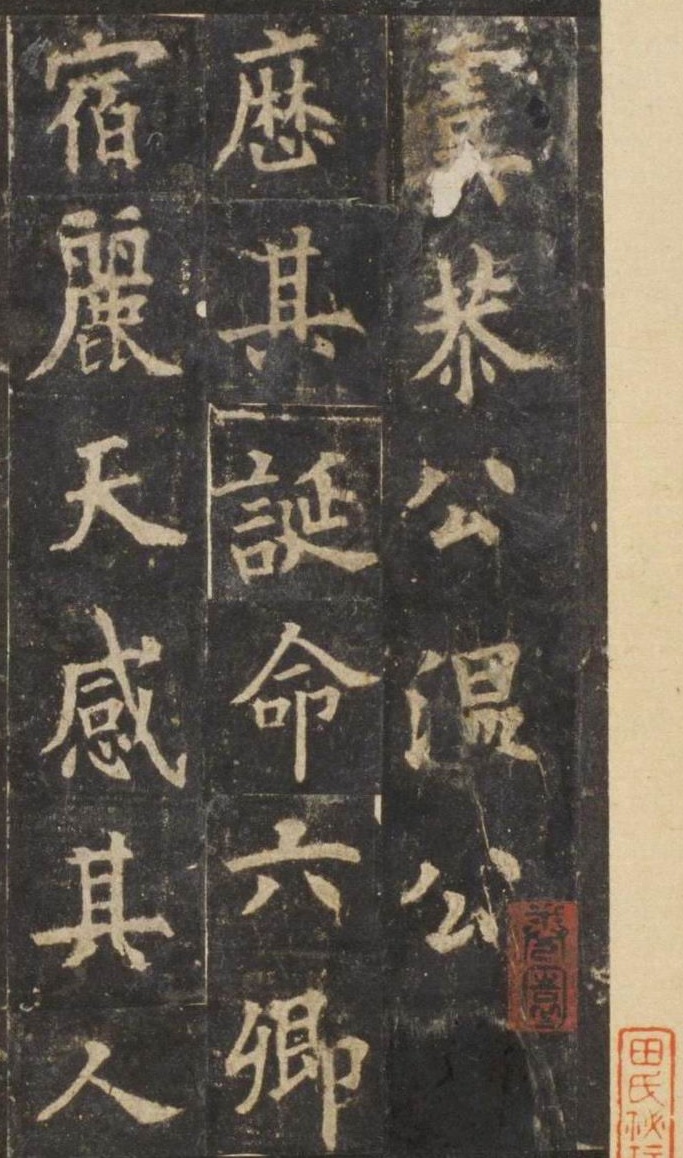 虞恭公温公
歴其誕命六卿
宿麗天感其人
田氏祕